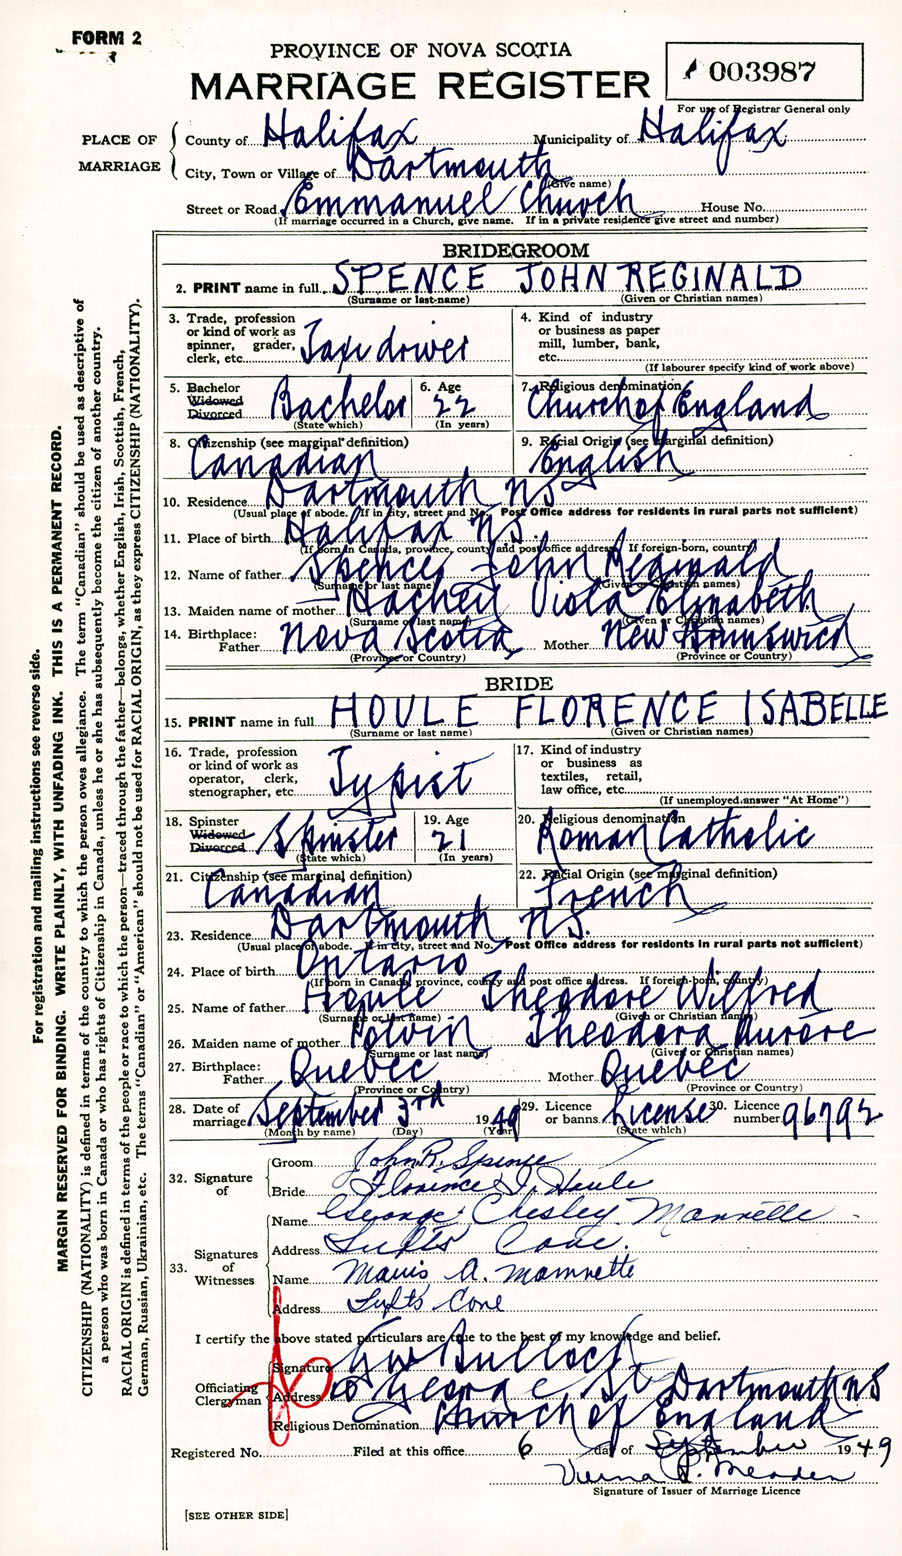 FORM 2
PROVINCE OF NOVA SCOTIA
MARRIAGE REGISTER
003987
For use of Registrar General only
PLACE OF MARRIAGE
County of Halifax Municipality of Halifax
City, Town or Village of Dartmouth
(Give name)
Street or Road Emmanuel Church House No.
(If marriage occurred in a Church, give name. If in a private residence give street and number)
BRIDEGROOM
2. PRINT name in full SPENCE JOHN REGINALD
(Surname or last-name) (Given or Christian names)
3. Trade, profession or kind of work as spinner, grader, clerk, etc. Taxi driver
4. Kind of industry or business as paper mill, lumber, bank, etc.
(If labourer specify kind of work above)
5. Bachelor Widowed Divorced Bachelor
(State which)
6. Age 22
(In years)
7. Religious denomination Church of England
8. Citizenship (see marginal definition) Canadian
9. Racial Origin (see marginal definition) English
10. Residence Dartmouth NS
(Usual place of abode. If in city, street and No. Post Office address for residents in rural parts not sufficient)
11. Place of birth Halifax NS.
(If born in Canada, province, county and post office address. If foreign-born, country)
12. Name of father Spence John Reginald
(Surname or last name) (Given or Christian names)
13. Maiden name of mother Hachey Viola Elizabeth
(Surname or last name) (Given or Christian names)
14. Birthplace: Father Nova Scotia Mother New Brunswick
(Province or Country) (Province or Country)
BRIDE
15. PRINT name in full HOULE FLORENCE ISABELLE
(Surname or last name) (Given or Christian names)
16. Trade, profession or kind of work as operator, clerk, stenographer, etc. Typist
17. Kind of industry or business as textiles, retail, law office, etc.
(If unemployed answer "At Home")
18. Spinster Widowed Divorced Spinster
(State which)
19. Age 21
(In years)
20. Religious denomination Roman Catholic
21. Citizenship (see marginal definition) Canadian
22. Racial Origin (see marginal definition) French
23. Residence Dartmouth NS.
(Usual place of abode. If in city, street and No. Post Office address for residents in rural parts not sufficient)
24. Place of birth Ontario
(If born in Canada, province, county and post office address. If foreign-born, country)
25. Name of father Houle Theodore Wilfred
(Surname or last name) (Given or Christian names)
26. Maiden name of mother Potvin Theodora Aurore
(Surname or last name) (Given or Christian names)
27. Birthplace: Father Quebec Mother Quebec
(Province or Country) (Province or Country)
28. Date of marriage September 3rd 1949
(Month by name) (Day) (Year)
29. Licence or banns License
(State which)
30. Licence number 96792
32. Signature of
Groom John R. Spence
Bride Florence I. Houle
33. Signatures of Witnesses
Name George Chesley
Address Tufts Cove.
Name Mavis A.
Address Tufts Cove
I certify the above stated particulars are true to the best of my knowledge and belief.
Officiating Clergyman
Signature Bulloch
Address George St Dartmouth NS
Religious Denomination Church of England
Registered No. Filed at this office 6 day of September 1949
Signature of Issuer of Marriage Licence
[SEE OTHER SIDE]
For registration and mailing instructions see reverse side.
MARGIN RESERVED FOR BINDING. WRITE PLAINLY, WITH UNFADING INK. THIS IS A PERMANENT RECORD.
CITIZENSHIP (NATIONALITY) is defined in terms of the country to which the person owes allegiance. The term "Canadian" should be used as descriptive of
a person who was born in Canada or who has rights of Citizenship in Canada, unless he or she has subsequently become the citizen of another country.
RACIAL ORIGIN is defined in terms of the people or race to which the person—traced through the father—belongs, whether English, Irish, Scottish, French,
German, Russian, Ukrainian, etc. The terms "Canadian" or "American" should not be used for RACIAL ORIGIN, as they express CITIZENSHIP (NATIONALITY).